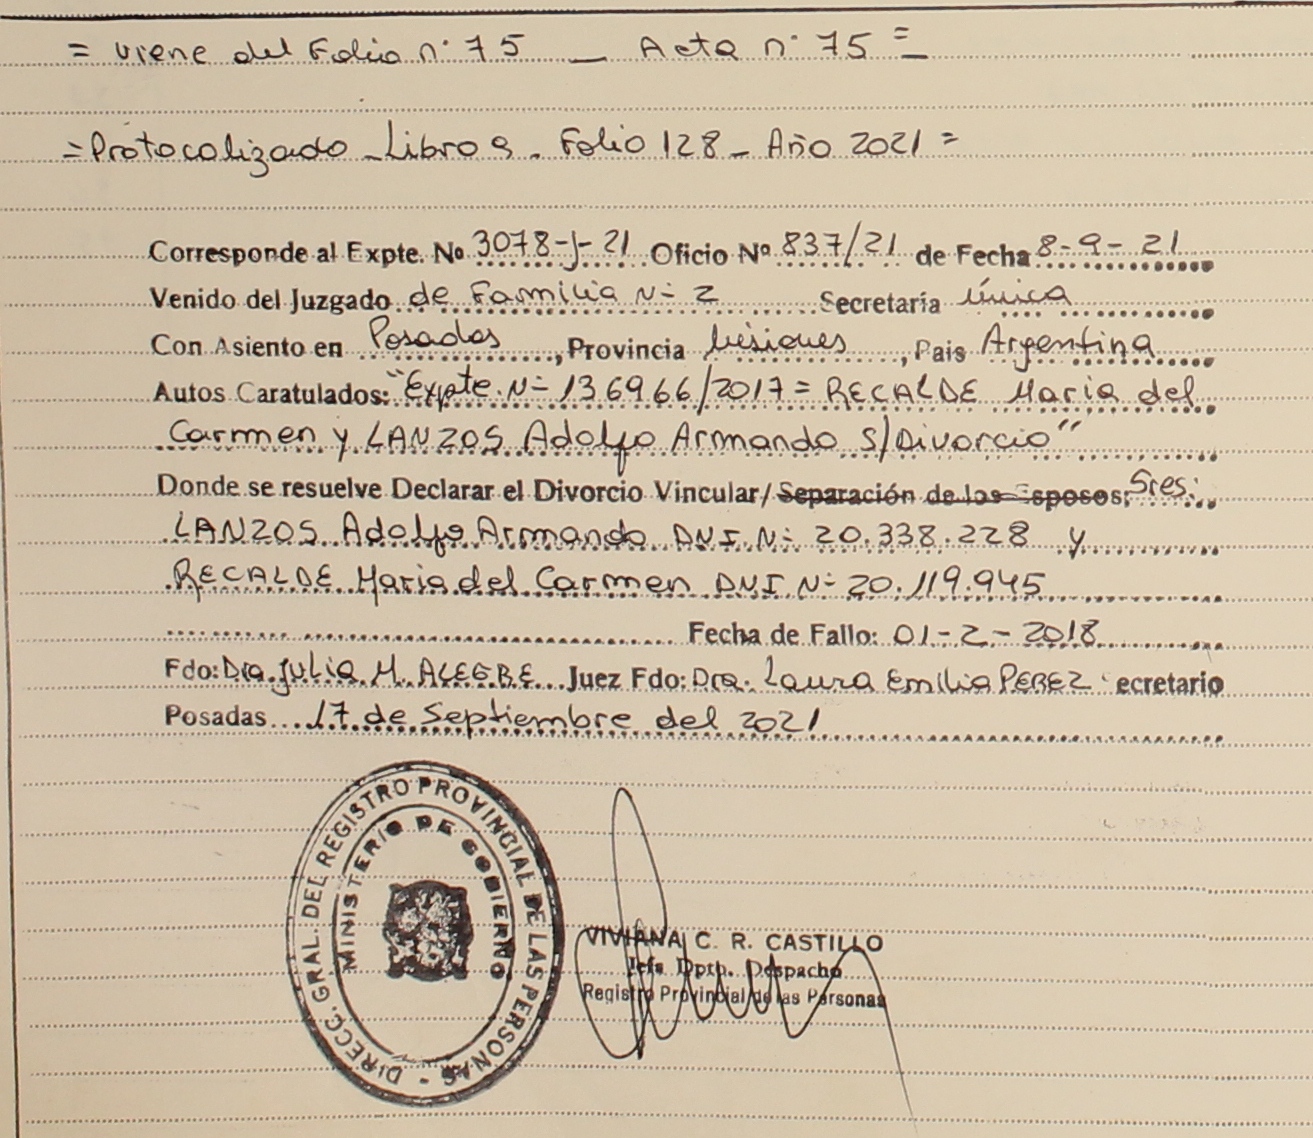 = viene del Folio n° 75 _ Acta n° 75 =
= Protocolizado - Libro 9 - Folio 128 - Año 2021 =
Corresponde al Expte. Nº 3078-J-21 Oficio Nº 837/21 de Fecha 8-9-21
Venido del Juzgado de Familia Nº 2 Secretaría única
Con Asiento en Posadas, Provincia Misiones, Pais Argentina
Autos Caratulados: "Expte. Nº 136966/2017 = RECALDE Maria del
Carmen y LANZOS Adolfo Armando S/Divorcio"
Donde se resuelve Declarar el Divorcio Vincular/ Separación de los Esposos: Sres:
LANZOS Adolfo Armando DNI Nº 20.338.228 y
RECALDE Maria del Carmen DNI Nº 20.119.945
Fecha de Fallo: 01-2-2018
Fdo: Dra. Julia M. ALEGRE Juez Fdo: Dra. Laura Emilia PEREZ ecretario
Posadas 17 de Septiembre del 2021
DIRECC. GRAL. DEL REGISTRO PROVINCIAL DE LAS PERSONAS -
MINISTERIO DE GOBIERNO
VIVIANA C. R. CASTILLO
Jefa Dpto. Despacho
Registro Provincial de las Personas